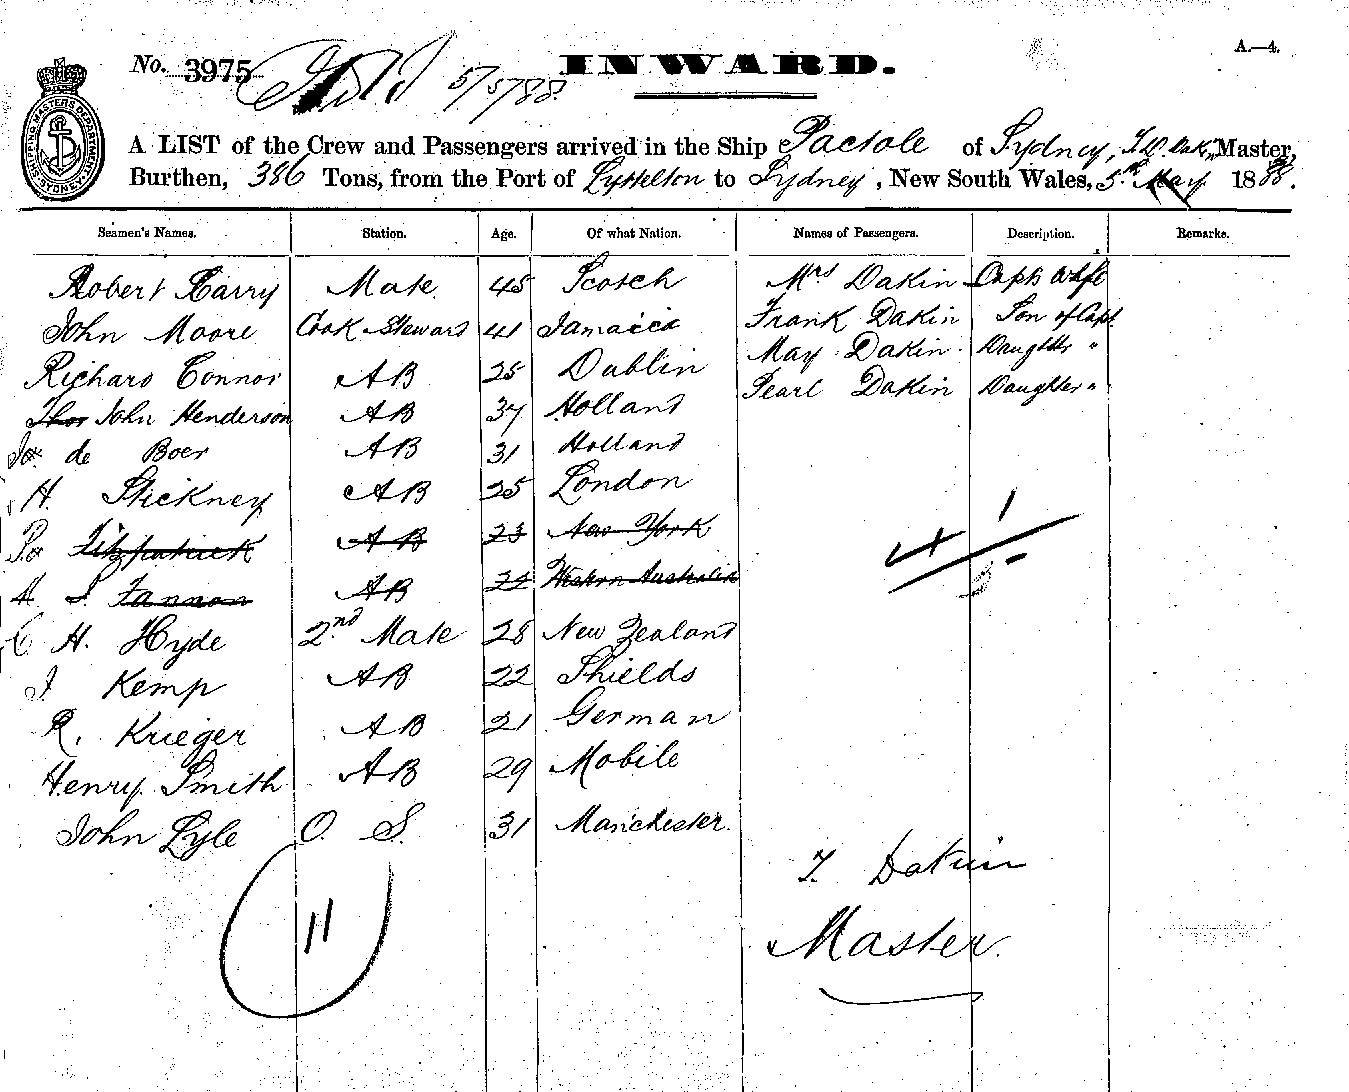 A.—4.
No. 3975 INWARD.
5/5/88.
SHIPPING MASTERS DEPARTMENT SYDNEY N.S.W.
A LIST of the Crew and Passengers arrived in the Ship Pactole of Sydney, Master,
Burthen, 386 Tons, from the Port of Lyttelton to Sydney, New South Wales, 5th May 1888.
Seamen's Names. Station. Age. Of what Nation. Names of Passengers. Description. Remarks.
Robert Harry Mate 45 Scotch Mrs Dakin Capts Wife
John Moore Cook & Steward 41 Jamaica Frank Dakin Son of Capt
Richard Connor AB 25 Dublin May Dakin Daughter "
Thos John Henderson AB 37 Holland Pearl Dakin Daughter "
de Boer AB 31 Holland
H. Stickney AB 25 London
Fitzpatrick AB 23 New York
Fannon AB Western Australia
C H. Hyde 2nd Mate 28 New Zealand
J Kemp AB 22 Shields
R. Krieger AB 21 German
Henry Smith AB 29 Mobile
John Lyle O. S. 31 Manchester.
11
T. Dakin
Master.